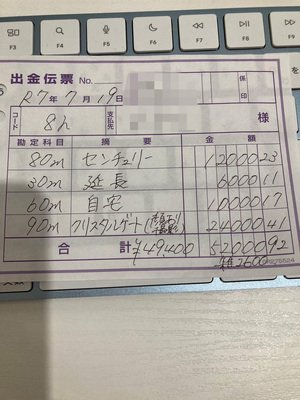 F3 F4 F5 F6 F7 F8 F9
出金伝票 No.
係印
R7年7月19日
コード 8h 支払先 様
勘定科目 摘要 金額
80m センチュリー 1200023
30m 延長 600011
60m 自宅 1000017
90m クリスタルゲート 2400041
合計 ¥49,400 5200092
雑2600